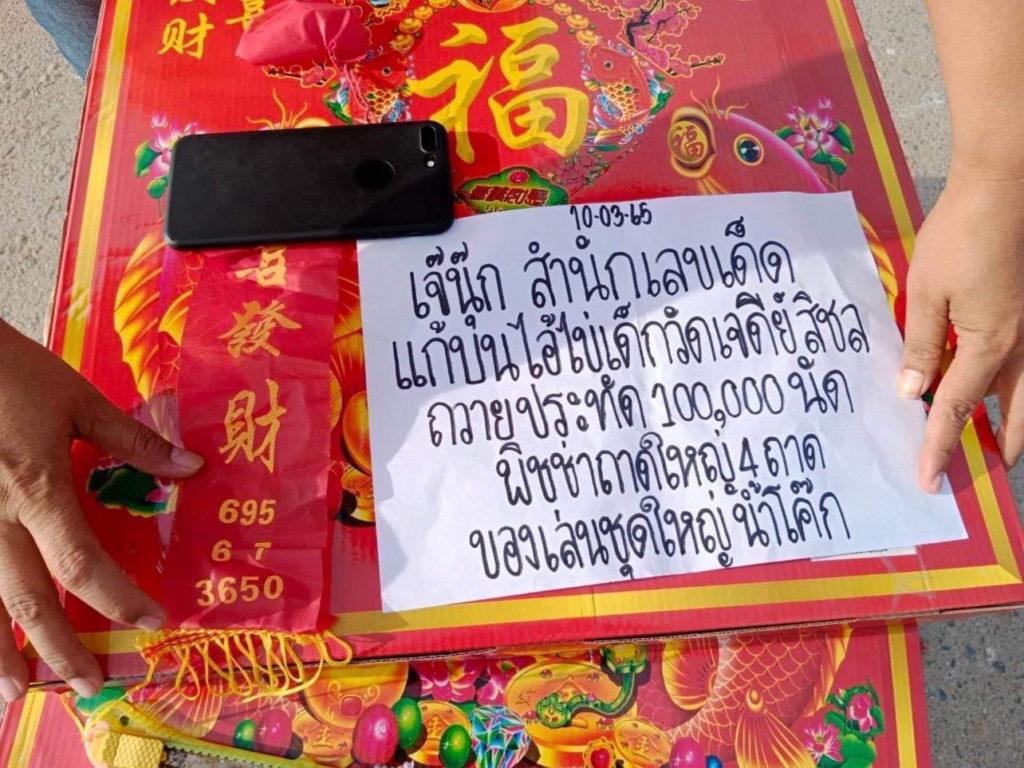 財
喜
福
福
10-03-65
เจ๊นุ๊ก สำนักเลขเด็ด
แก้บนไอ้ไข่เด็กวัดเจดีย์สิชล
ถวายประทัด 100,000 นัด
พิซซ่าถาดใหญ่ 4 ถาด
ของเล่นชุดใหญ่ น้ำโค๊ก
喜
發
財
695
6 7
3650